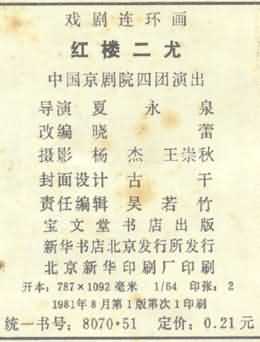 戏剧连环画
红楼二尤
中国京剧院四团演出
导演 夏永泉
改编 晓蕾
摄影 杨杰 王崇秋
封面设计 古干
责任编辑 吴若竹
宝文堂书店出版
新华书店北京发行所发行
北京新华印刷厂印刷
开本:787×1092毫米 1/64 印张:2
1981年8月第1版第次1印刷
统一书号:8070·51 定价:0.21元